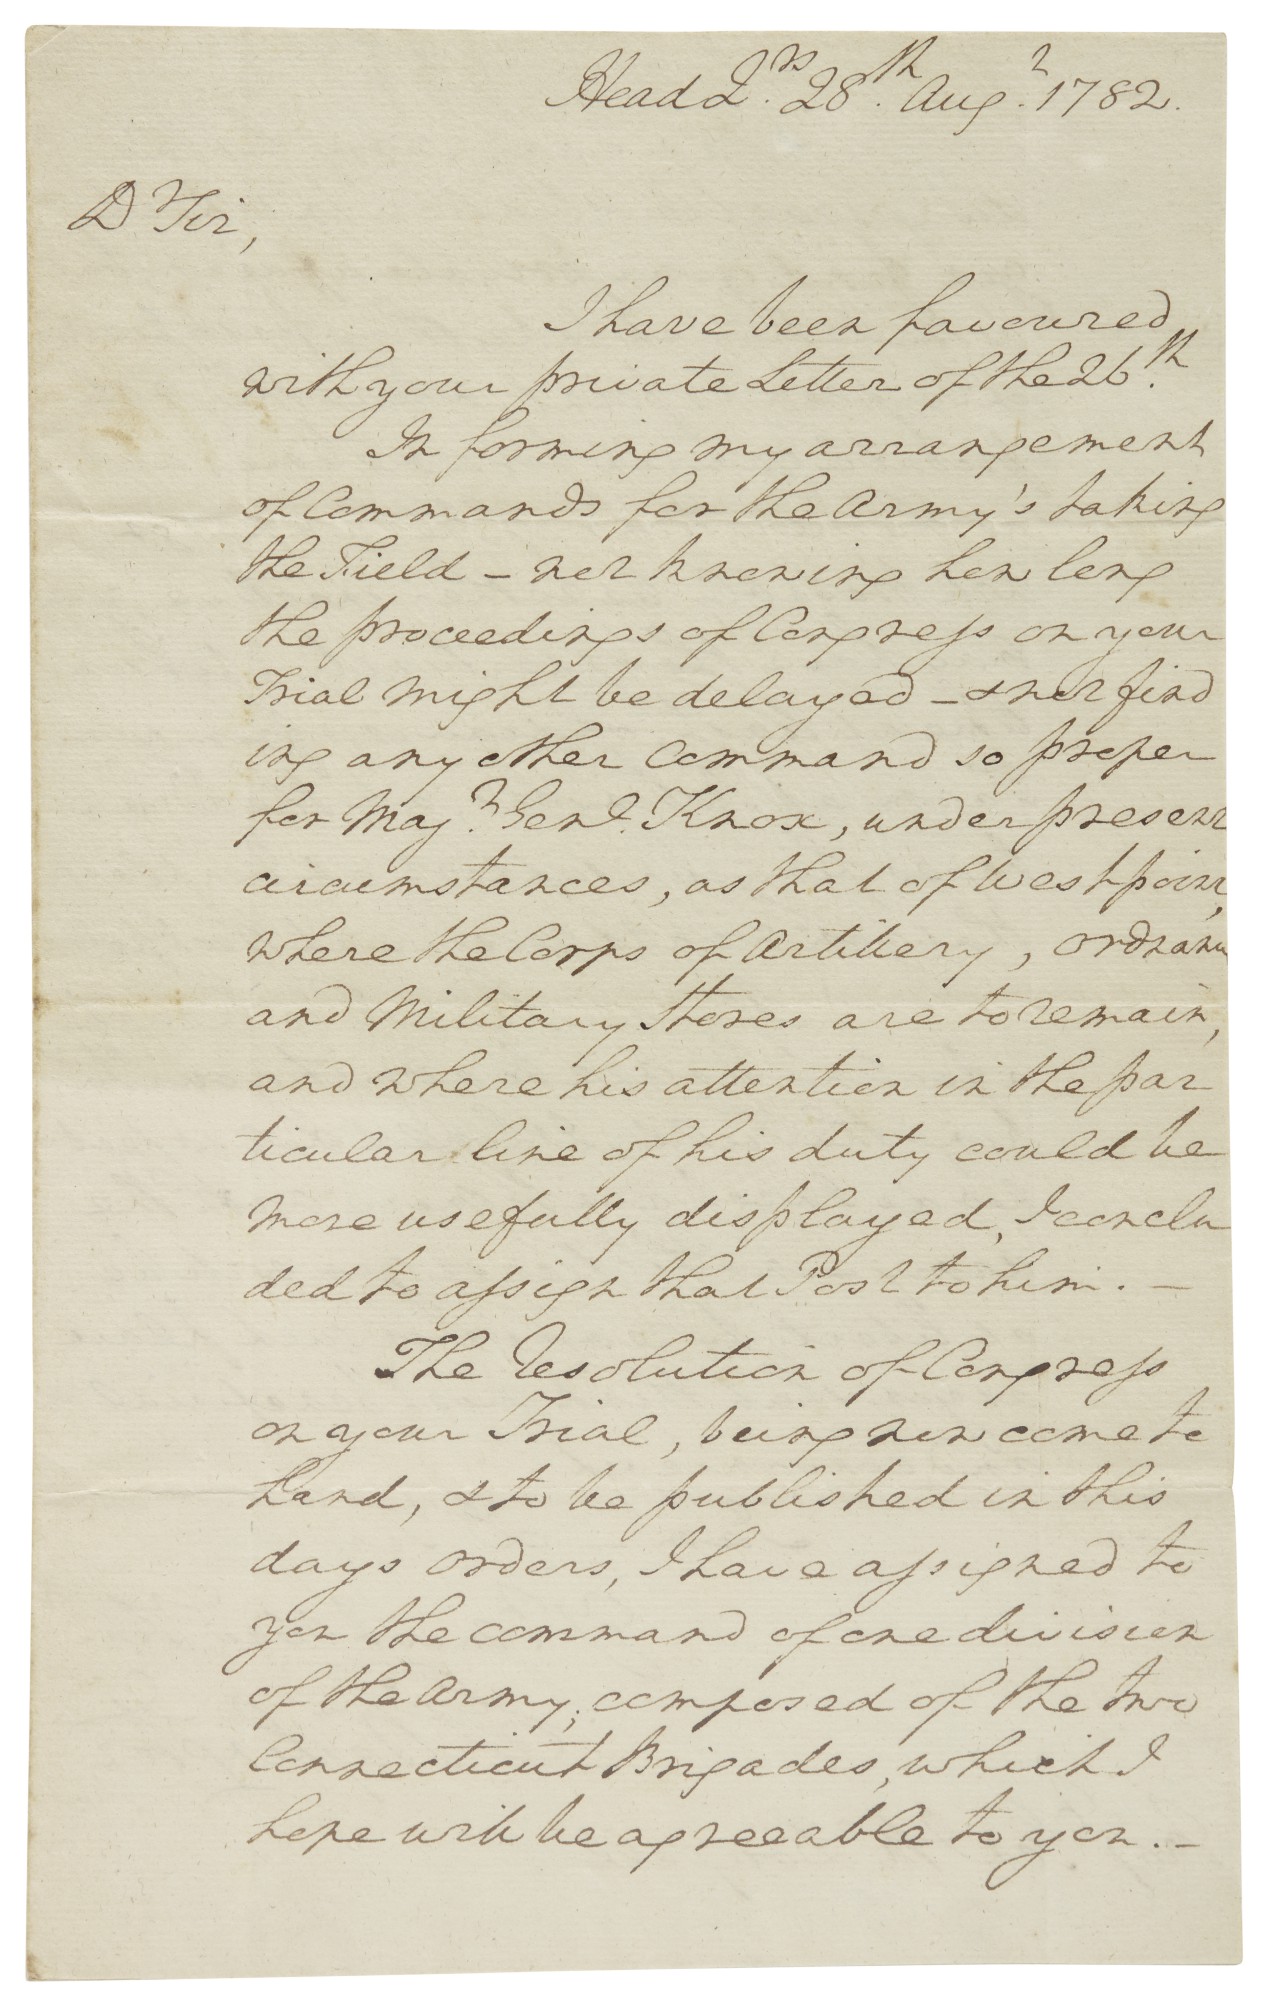 Head Qrs. 28th. Augt. 1782.
Dr Sir,
I have been favoured
with your private Letter of the 26th.
In forming my arrangement
of Commands for the Army's taking
the Field – not knowing how long
the proceedings of Congress on your
Trial might be delayed – & not find
ing any other Command so proper
for Majr. Genl. Knox, under present
circumstances, as that of West point,
where the Corps of Artillery, Ordnance
and Military Stores are to remain,
and where his attention in the par
ticular line of his duty could be
more usefully displayed, I conclu
ded to assign that Post to him. –
The Resolution of Congress
on your Trial, being now come to
hand, & to be published in this
days orders, I have assigned to
you the command of one division
of the Army, composed of the two
Connecticut Brigades, which I
hope will be agreeable to you. –